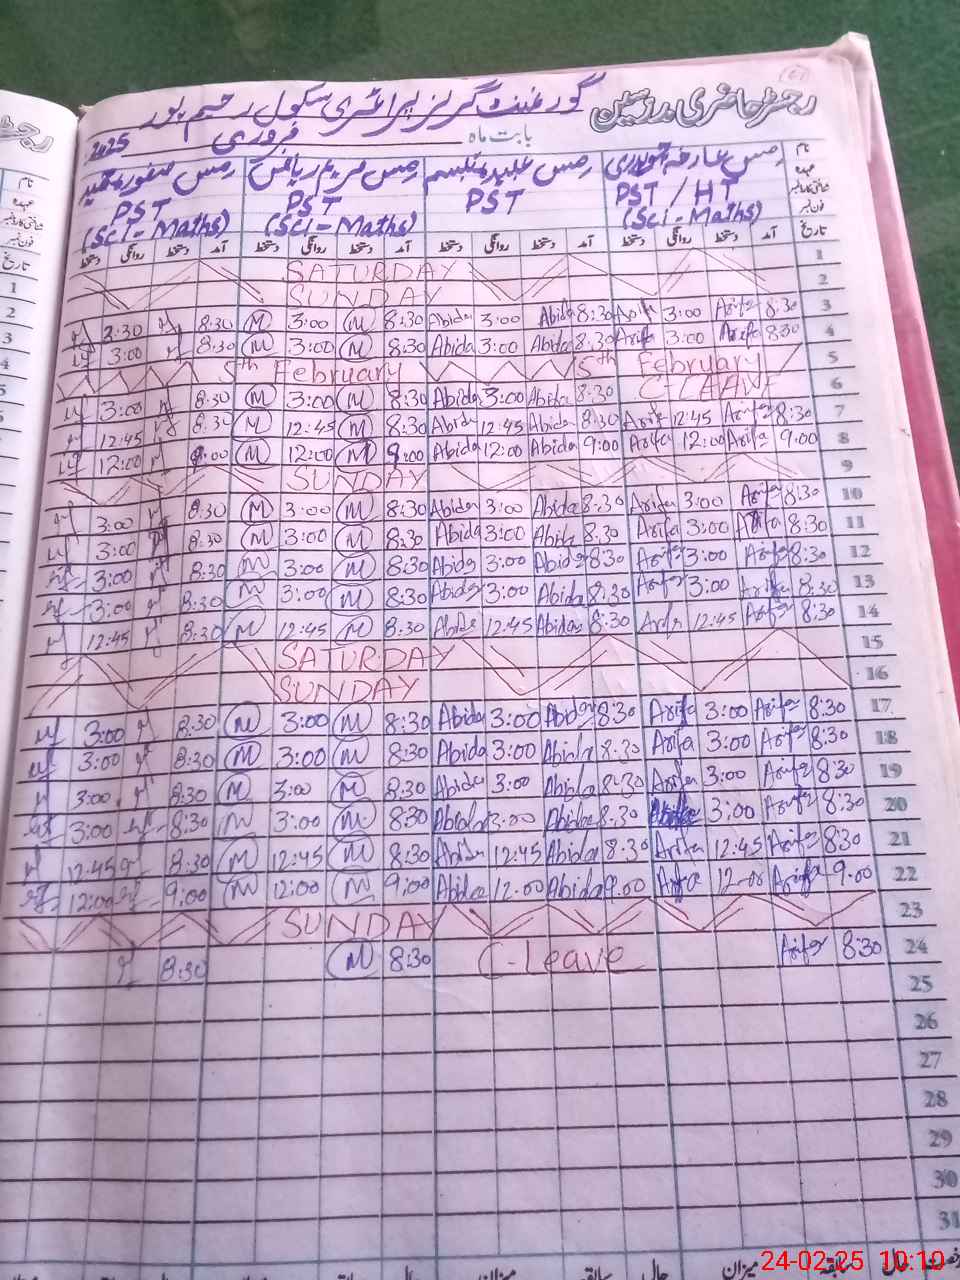 رجسٹر حاضری مدرسین
گورنمنٹ گرلز پرائمری سکول رحیم پور
بابت ماہ فروری 2025
نام مس عارفہ مس عابدہ مس مریم ریاض مس
عہدہ PST / HT PST PST PST
(Sci-Maths) (Sci-Maths) (Sci-Maths)
تاریخ آمد دستخط روانگی دستخط آمد دستخط روانگی دستخط آمد دستخط روانگی دستخط آمد دستخط روانگی دستخط
SATURDAY 1
SUNDAY 2
3:30 8:30 M 3:00 M 8:30 Abida 3:00 Abida 8:30 Arifa 3:00 Arifa 8:30 3
3:00 8:30 M 3:00 M 8:30 Abida 3:00 Abida 8:30 Arifa 3:00 Arifa 8:30 4
5th February 5th February 5
3:00 8:30 M 3:00 M 8:30 Abida 3:00 Abida 8:30 C-LEAVE 6
12:45 8:30 M 12:45 M 8:30 Abida 12:45 Abida 8:30 Arifa 12:45 Arifa 8:30 7
12:00 9:00 M 12:00 M 9:00 Abida 12:00 Abida 9:00 Arifa 12:00 Arifa 9:00 8
SUNDAY 9
3:00 8:30 M 3:00 M 8:30 Abida 3:00 Abida 8:30 Arifa 3:00 Arifa 8:30 10
3:00 8:30 M 3:00 M 8:30 Abida 3:00 Abida 8:30 Arifa 3:00 Arifa 8:30 11
3:00 8:30 M 3:00 M 8:30 Abida 3:00 Abida 8:30 Arifa 3:00 Arifa 8:30 12
3:00 8:30 M 3:00 M 8:30 Abida 3:00 Abida 8:30 Arifa 3:00 Arifa 8:30 13
12:45 8:30 M 12:45 M 8:30 Abida 12:45 Abida 8:30 Arifa 12:45 Arifa 8:30 14
SATURDAY 15
SUNDAY 16
3:00 8:30 M 3:00 M 8:30 Abida 3:00 Abida 8:30 Arifa 3:00 Arifa 8:30 17
3:00 8:30 M 3:00 M 8:30 Abida 3:00 Abida 8:30 Arifa 3:00 Arifa 8:30 18
3:00 8:30 M 3:00 M 8:30 Abida 3:00 Abida 8:30 Arifa 3:00 Arifa 8:30 19
3:00 8:30 M 3:00 M 8:30 Abida 3:00 Abida 8:30 3:00 Arifa 8:30 20
12:45 8:30 M 12:45 M 8:30 Abida 12:45 Abida 8:30 Arifa 12:45 Arifa 8:30 21
12:00 9:00 M 12:00 M 9:00 Abida 12:00 Abida 9:00 Arifa 12:00 Arifa 9:00 22
SUNDAY 23
8:30 M 8:30 C-Leave Arifa 8:30 24
25
26
27
28
29
30
31
رخصت حال سابقہ میزان حال سابقہ میزان حال سابقہ
24-02-25 10:10